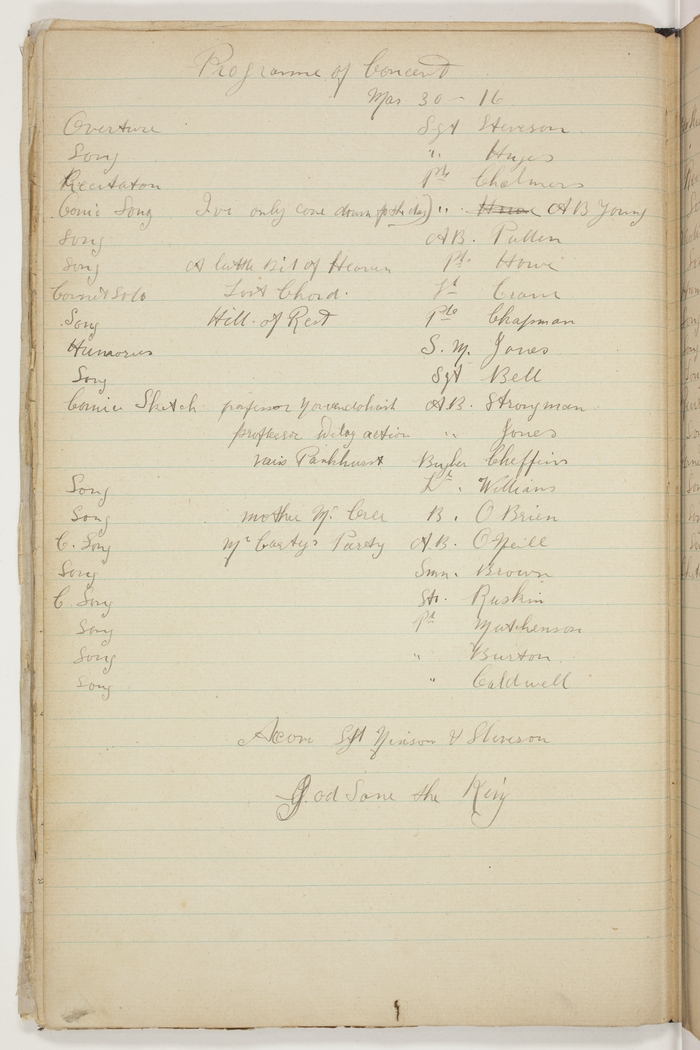 Programme of Concert
Mar 30 - 16
Overture Sgt Steveson
Song " Huges
Recitaton Pte Chalmers
Comic Song I've only come down for the day) " A B Young
Song A B. Pullen
Song A little Bit of Heaven Pt. Howe
Cornet Solo Lost Chord. Crane
Song Hill of Rest Pte Chapman
Humorus S. M. Jones
Song Sgt Bell
Comic Sketch professor A B. Strongman
professor action " Jones
Pankhurst Bugler Cheffins
Song Williams
Song mother Mc Cree B. O Brien
C. Song Mc Cartys Party A.B. O Neill
Song Smn. Brown
C Song St. Ruskin
Song Pt Mathenson
Song " Burton
Song " Caldwell
Acom Sgt & Steveson
God Save the King